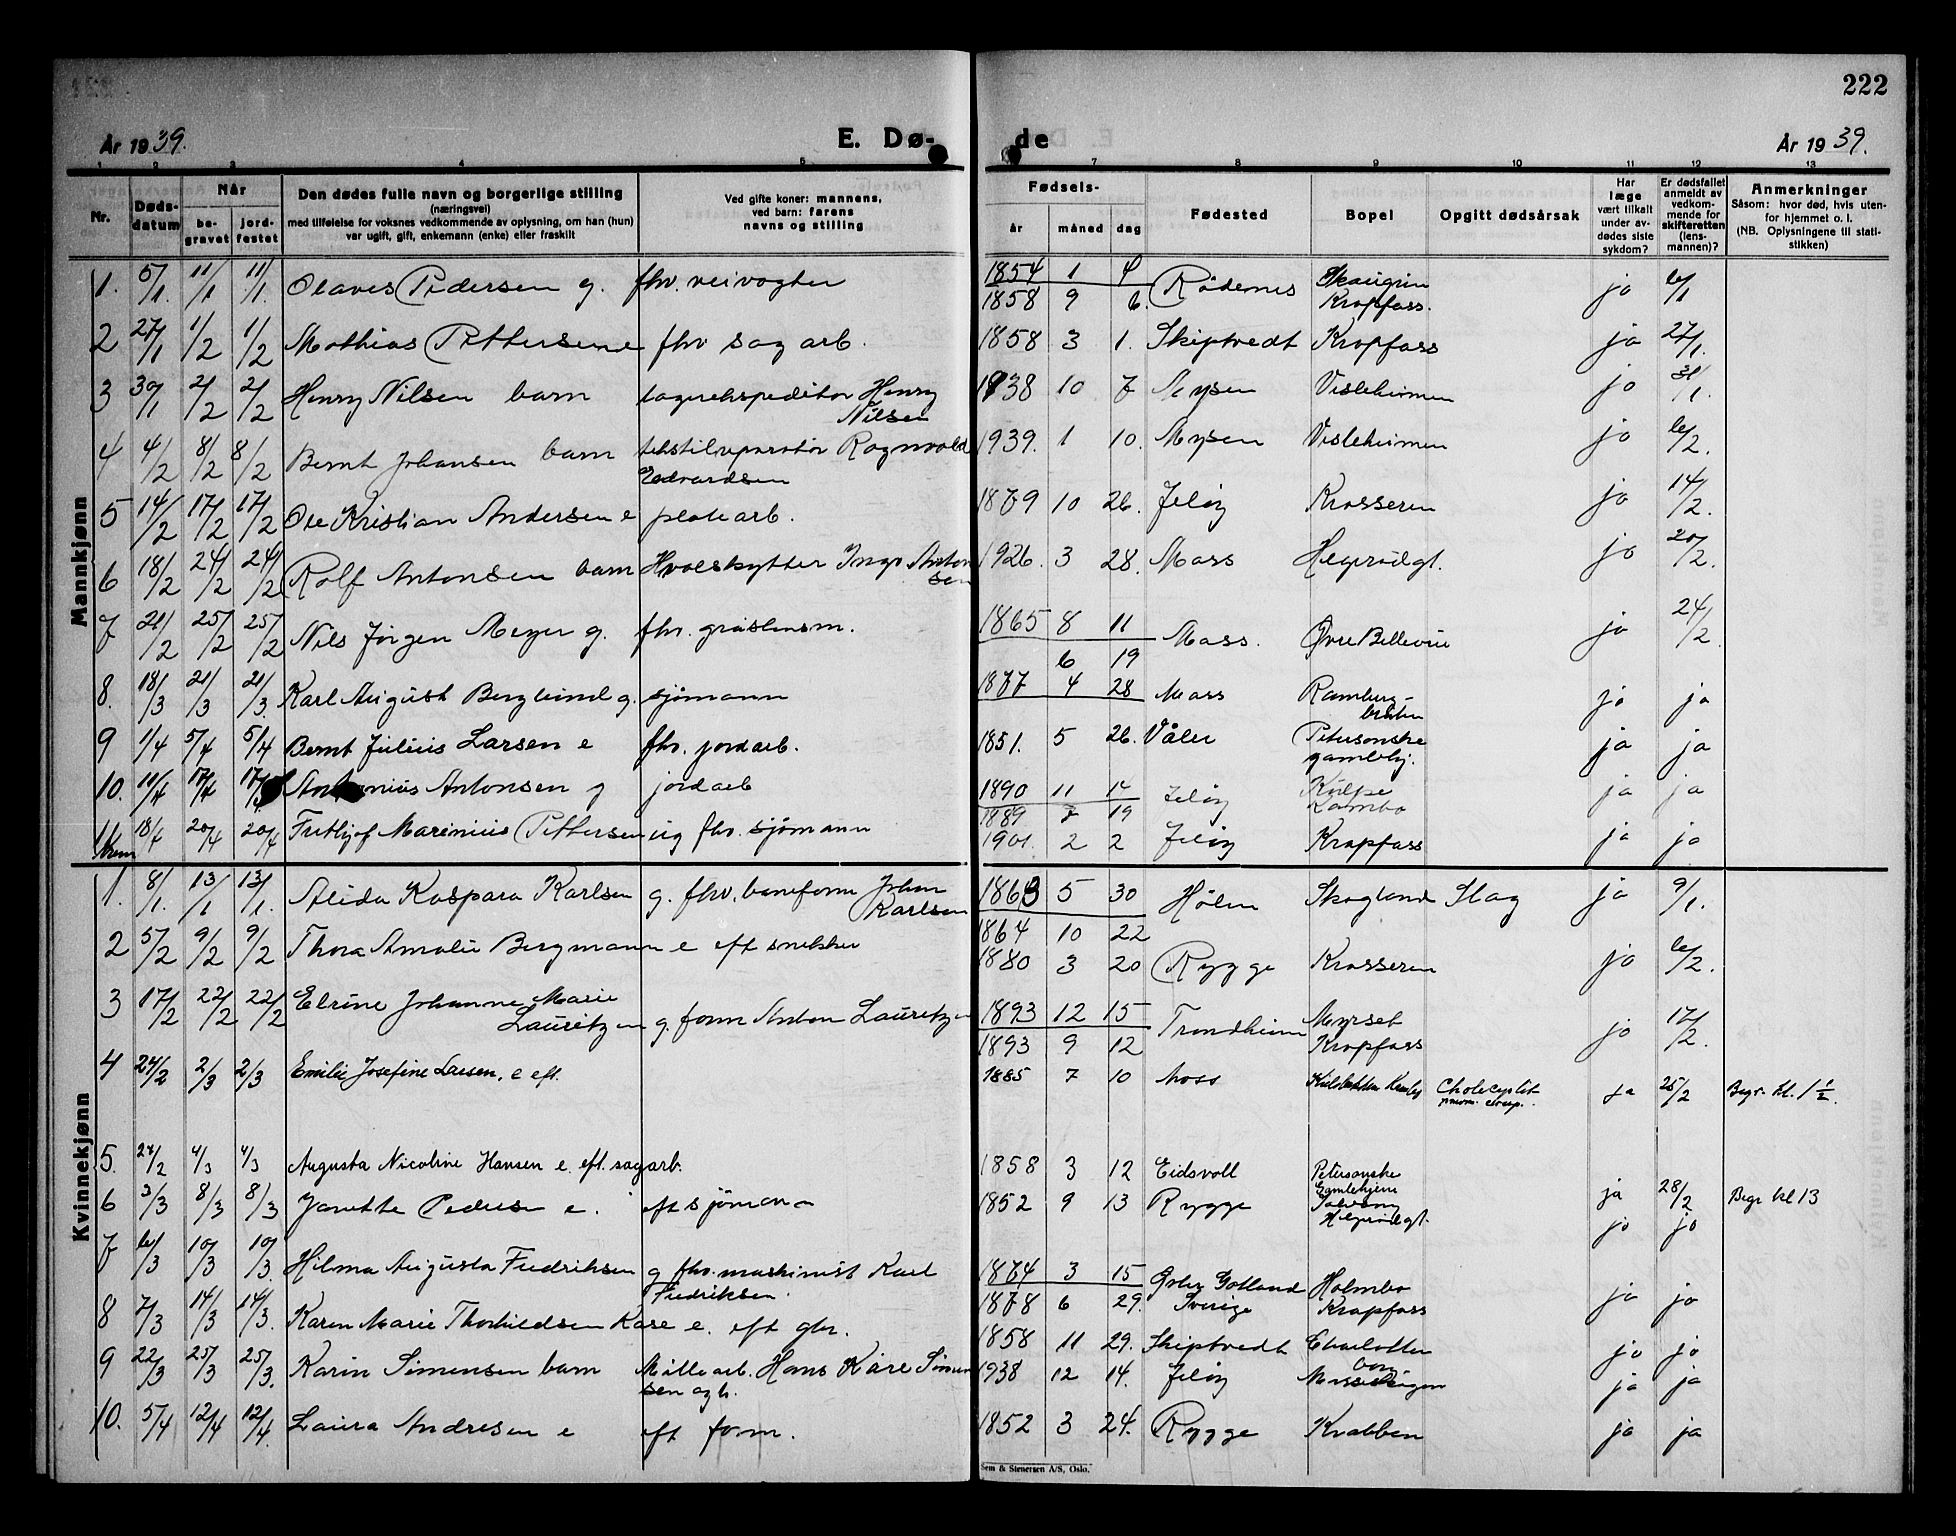 222
År 1939.
E. Dø-
de
År 1939.
1 2 3 4 5 7 8 9 10 11 12 13
Nr.
Døds-
datum
Når
be-
gravet
jord-
festet
Den dødes fulle navn og borgerlige stilling
(næringsvei)
med tilføielse for voksnes vedkommende av oplysning, om han (hun)
var ugift, gift, enkemann (enke) eller fraskilt
Ved gifte koner: mannens,
ved barn: farens
navns og stilling
Fødsels-
år måned dag
Fødested
Bopel
Opgitt dødsårsak
Har
læge
vært tilkalt
under av-
dødes siste
sykdom?
Er dødsfallet
anmeldt av
vedkom-
mende for
skifteretten
(lens-
mannen)?
Anmerkninger
Såsom: hvor død, hvis uten-
for hjemmet o. l.
(NB. Oplysningene til stati-
stikken)
Mannkjønn
1. 5/1. 11/1 11/1. Olaves Pedersen g. fhv. veivogter 1854 1 4 Rødenes Skaugrim jo 6/1
1858 9 6. Kropfoss.
2 27/1 1/2 1/2 Mathias Pettersen e fhv sag arb. 1858 3 1. Skiptvedt Kropfoss ja 27/1.
3 30/1 2/2 2/2 Henry Nilsen barn lagerekspeditør Henry 1938 10 7 Mysen Visleheimen jo 31/1.
Nilsen
4 4/2 8/2 8/2 Bernt Johansen barn tekstilreparatør Ragnvald 1939. 1 10. Mysen Visleheimen jo 6/2.
Edvardsen
5 14/2 17/2 17/2 Ole Kristian Andersen e platearb. 1879 10 26. Jeløy Krosseren jo 14/2.
6 18/2 24/2 24/2 Rolf Antonsen barn Hvalskytter Ingv. Anton 1926. 3 28. Moss Hegrødgt. jo 20/2.
sen
7 21/2 25/2 25/2 Nils Jørgen Meyer g. fhv. grøslensm. 1865 8 11 Moss. Øvre Bellevue jo 24/2.
6 19
8. 18/3 21/3 21/3. Karl August Berglund g. sjømann 1877 4 28 Moss Ramberg- jo ja
bråten
9 1/4 5/4 5/4 Bernt Julius Larsen e fhv. jordarb. 1851. 5 26. Våler Petersonske ja ja
gamlehj.
10. 11/4 17/4 17/ Antonius Antonsen g jordarb 1890 11 14 Jeløy Kulpe ja ja
1889 7 19 Kambo
11 18/4 20/4 20/4 Frithjof Marinius Pettersen ug fhv. sjømann 1901. 2 2 Jeløy Kropfoss ja jo
Kvinnekjønn
1. 8/1. 13/1 13/1. Alida Kaspara Karlsen g. fhv. baneform Johan 1863 5 30 Hølen Skogland Slag ja 9/1.
Karlsen
1864 10 22
2 5/2 9/2 9/2 Thora Amalie Bergmann e eft snekker 1880 3 20 Rygge Krosseren jo 6/2.
3 17/2 22/2 22/2 Elrine Johanne Marie 1893 12 15 Trondheim Myrset jo 17/2.
Lauritzen g. form Anton Lauritzen
1893 9 12 Kropfoss
4 24/2 2/3 2/3 Emilie Josefine Larsen, e eft. 1885 7 10 Moss Cholecystit ja 25/2 Begr. kl. 1 1/2.
pneum. croup.
5. 24/2 4/3 4/3 Augusta Nicoline Hansen e. eft. sagarb. 1858 3 12 Eidsvoll Petersonske ja 28/2 Begr kl 13
Gamlehjem
6 3/3 8/3 8/3 Janette Pedersen e. eft sjømann 1852 9 13 Rygge Solvang jo jo
Hegrødgt.
7 6/3 10/3 10/3. Hilma Augusta Fredriksen g fhv. maskinist Karl 1874 3 15 Øster Gotland Holmbo ja jo
Fredriksen.
1878 6 29. Sverige Kropfoss
8 7/3 14/3 14/3. Karen Marie Thorkildsen Kase e. eft gbr. 1858 11 29. Skiptvedt Charlotten jo jo
borg
9 22/3 25/3 25/3. Karin Simensen barn Møllearb. Hans Kåre Simen 1938 12 14. Jeløy Mosseskogen ja ja
sen ogh.
10. 5/4 12/4 12/4. Laura Andresen e eft form. 1852 3 24. Rygge Krabben jo ja
Sem & Stenersen A/S, Oslo.